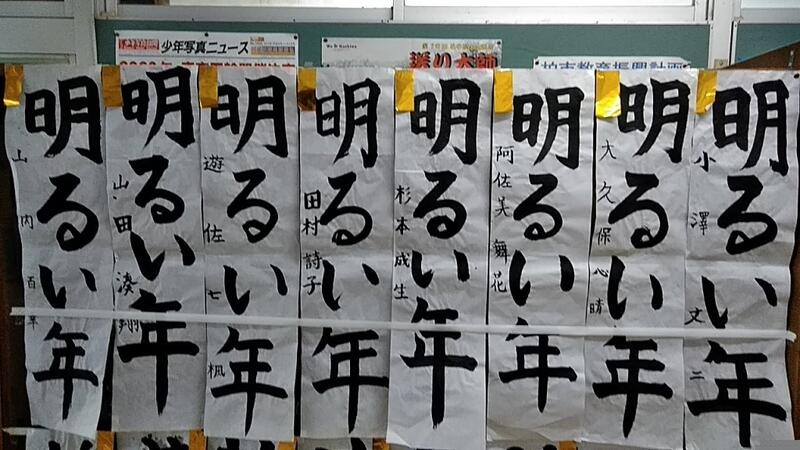 少年写真ニュース
柏市教育振興計画
明るい年
小澤文二
明るい年
大久保心晴
明るい年
阿佐美舞花
明るい年
杉本成生
明るい年
田村詩子
明るい年
遊佐七楓
明るい年
山田湊翔
明るい年
山内百